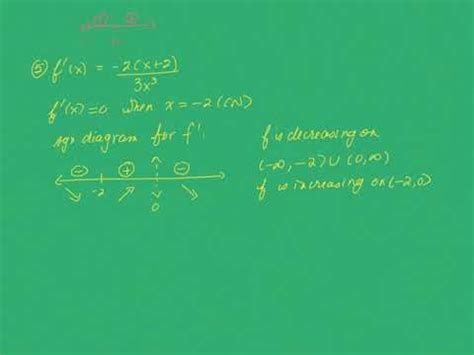 ⑤ f'(x) = -2(x+2) / 3x³
f'(x)=0 when x=-2 (CN)
sgn diagram for f'.
⊖ ⊕ ⊖
-2 0
f is decreasing on
(-∞, -2) ∪ (0, ∞)
f is increasing on (-2, 0)